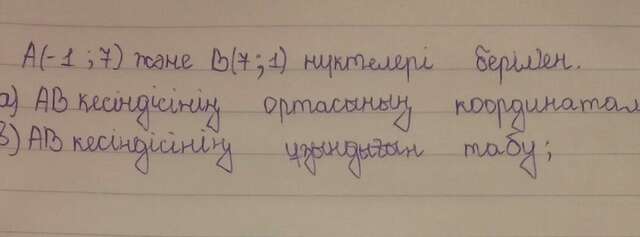 A(-1;7) және B(7;1) нүктелері берілген.
а) AB кесіндісінің ортасының координатал
в) AB кесіндісінің ұзындығын табу;